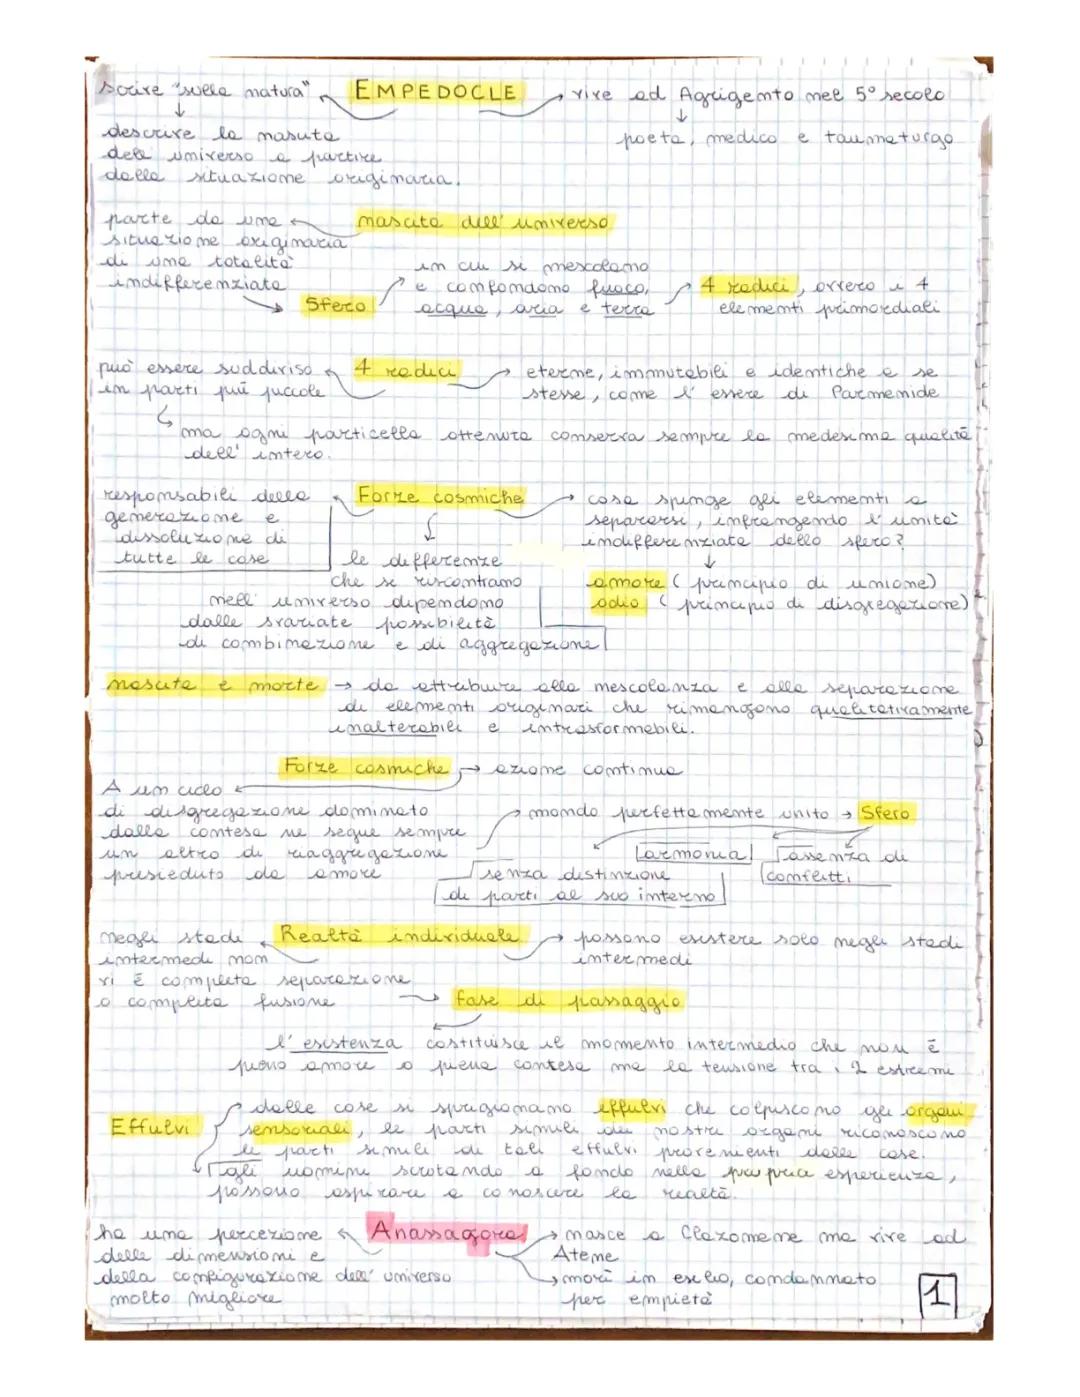 scrive "sulla natura"
EMPEDOCLE
vive ad Agrigento nel 5° secolo
poeta, medico e taumaturgo
descrive la nascita
dell universo a partire
dalla situazione originaria.
nascita dell' universo
parte da una
situazione originaria
di una totalità
indifferenziata
Sfero
in cui si mescolano
e confondono fuoco,
acqua, aria e terra
4 radici, ovvero i 4
elementi primordiali
può essere suddiviso
in parti più piccole
4 radici
eterne, immutabili e identiche a se
stesse, come l' essere di Parmenide
ma ogni particella ottenuta conserva sempre la medesima qualità
dell' intero.
responsabili della
generazione e
dissoluzione di
tutte le cose
Forze cosmiche
cosa spinge gli elementi a
separarsi, infrangendo l' unità
indifferenziata dello sfero?
amore (principio di unione)
odio (principio di disgregazione)
le differenze
che si riscontrano
nell' universo dipendono
dalle svariate possibilità
di combinazione e di aggregazione
nascita e morte → da attribuire alla mescolanza e alla separazione
di elementi originari che rimangono qualitativamente
inalterabili e intrasformabili.
Forze cosmiche
azione continua
A un ciclo
di disgregazione dominato
dalla contesa ne segue sempre
un altro di riaggregazione
presieduto da amore
mondo perfettamente unito → Sfero
armonia
assenza di
conflitti
senza distinzione
di parti al suo interno
negli stadi
intermedi non
vi è completa separazione
o completa fusione
Realtà individuale
possono esistere solo negli stadi
intermedi
fase di passaggio
l' esistenza costituisce il momento intermedio che non è
pieno amore o piena contesa ma la tensione tra i 2 estremi
Effulvi
dalle cose si sprigionano effulvi che colpiscono gli organi
sensoriali, le parti simili dei nostri organi riconoscono
le parti simili di tali effulvi provenienti dalle cose.
gli uomini scrutando a fondo nella propria esperienza,
possono aspirare a conoscere la realtà.
ha una percezione
delle dimensioni e
della configurazione dell' universo
molto migliore
Anassagora
nasce a Clazomene ma vive ad
Atene
morì in esilio, condannato
per empietà
1